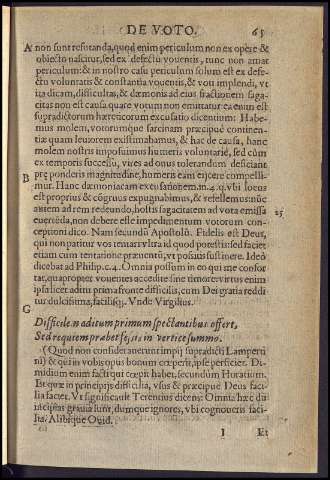 DE VOTO. 65
A non sunt refotanda, quod enim periculum non ex opere &
obiecto nascitur, sed ex defectu vouentis, tunc non amat
periculum: & in nostro casu periculum solum est ex defe-
ctu voluntatis & constantia vouentis, & voti implendi, vt
ita dicam, difficultas, & dæmonis ad eius fractionem saga-
citas non est causa quare votum non emittatur: ea enim est
supradictorum hæreticorum excusatio dicentium: Habe-
mus molem, votorumque sarcinam præcipuè continen-
tiæ quam leuiorem existimabamus, & hac de causa, hanc
molem nostris imposuimus humeris voluntariè, sed cùm
ex temporis successu, vires ad onus tolerandum desciant
præ ponderis magnitudine, humeris eam eijcere compelli-
B mur. Hanc dæmoniacam excusationem. in. 4. q. vbi locus
est proprius & côgruus expugnabimus, & refellemus: nûc
autem ad rem redeundo, hostis sagacitatem ad vota emissa 25
euertêda, non debere esse impedimentum votorum con-
ceptioni dico. Nam secundũ Apostolũ. Fidelis est Deus,
qui non patitur vos tentari vltra id quod potestis: sed faciet
etiam cum tentatione prouentũ, vt possitis sustinere. Ideò
dicebat ad Philip. c. 4. Omnia possum in eo qui me confor
tat, quapropter vouentes accedite sine timore: virtus enim
ipsa licet aditu prima fronte difficilis, cum Dei gratia reddi
tur dulcissima, facilisq́;. Vnde Virgilius.
C Difficilem aditum primum spectantibus offert,
Sed requiem præbet fessis in vertice summo.
(Quod non considerauerunt impij supradicti Lamperti
ni) & qui in vobis opus bonum cœperit, ipse perficiet. Di-
midium enim facti qui cœpit habet, secundùm Horatium.
Et quæ in principijs difficilia, vsus & præcipuè Deus faci-
lia facet. Vt significauit Terencius dicens: Omnia hæc du
incipias grauia sunt, dumque ignores, vbi cognoueris faci-
lia. Alibique Ouid.
I Et